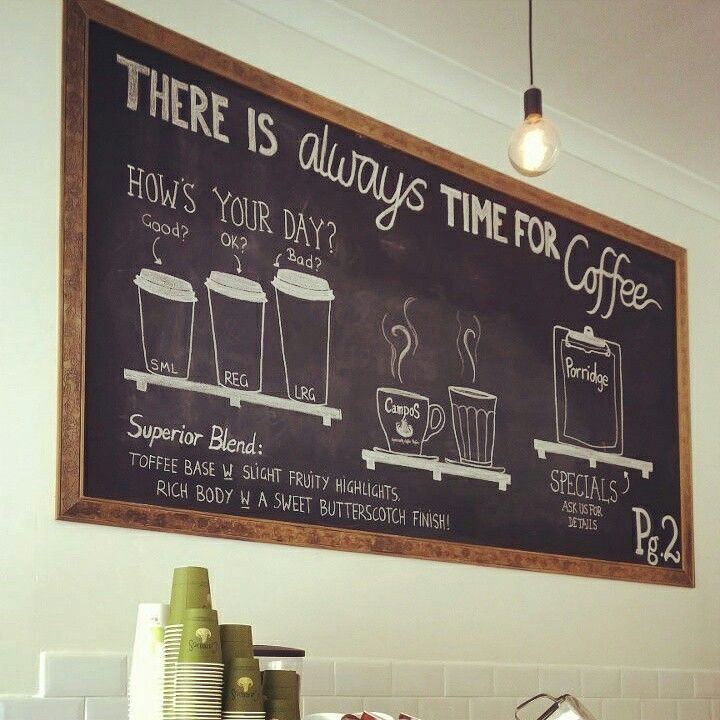 THERE IS always TIME FOR Coffee
HOW'S YOUR DAY?
Good?
OK?
Bad?
SML
REG
LRG
CampoS
Porridge
Superior Blend:
TOFFEE BASE W SLIGHT FRUITY HIGHLIGHTS.
RICH BODY W A SWEET BUTTERSCOTCH FINISH!
SPECIALS
ASK US FOR
DETAILS
Pg.2